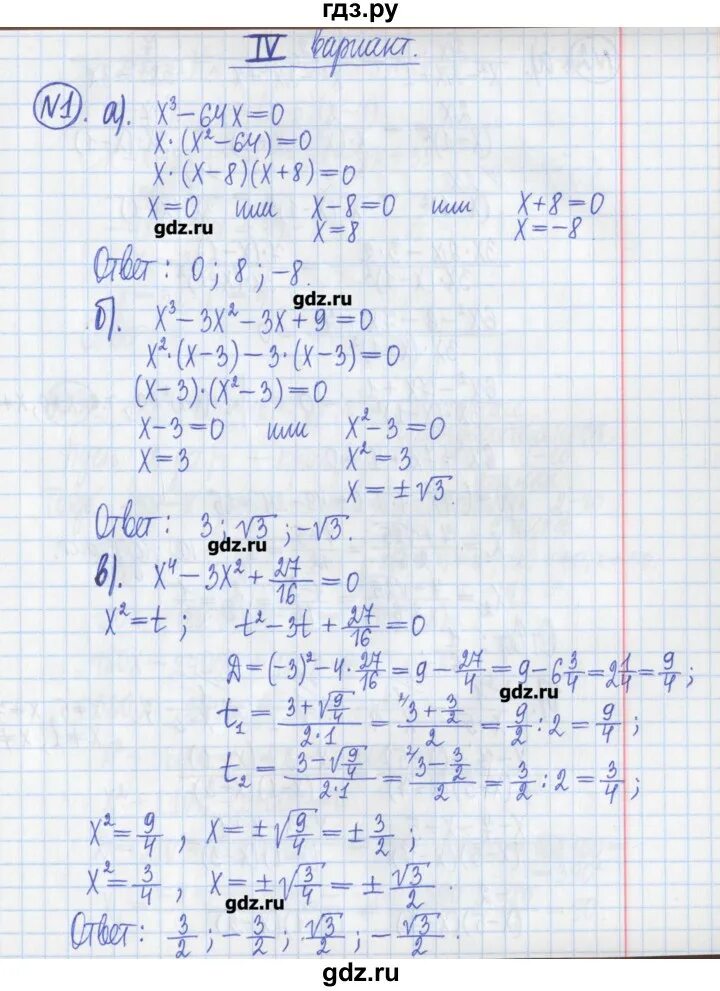 гдз.ру
IV вариант.
№1. а). x³ − 64x = 0
x·(x² − 64) = 0
x·(x − 8)(x + 8) = 0
x = 0 или x − 8 = 0 или x + 8 = 0
gdz.ru x = 8 x = −8.
Ответ: 0; 8; −8.
gdz.ru
б). x³ − 3x² − 3x + 9 = 0
x²·(x − 3) − 3·(x − 3) = 0
(x − 3)·(x² − 3) = 0
x − 3 = 0 или x² − 3 = 0
x = 3 x² = 3
x = ±√3.
Ответ: 3; √3; −√3.
gdz.ru
в). x⁴ − 3x² + 27/16 = 0
x² = t; t² − 3t + 27/16 = 0
Д = (−3)² − 4·27/16 = 9 − 27/4 = 9 − 6 3/4 = 2 1/4 = 9/4;
gdz.ru
t₁ = (3 + √(9/4))/(2·1) = (²⁄3 + 3/2)/2 = 9/2 : 2 = 9/4;
t₂ = (3 − √(9/4))/(2·1) = (²⁄3 − 3/2)/2 = 3/2 : 2 = 3/4;
x² = 9/4, x = ±√(9/4) = ±3/2;
x² = 3/4, x = ±√(3/4) = ±√3/2.
gdz.ru
Ответ: 3/2; −3/2; √3/2; −√3/2.
gdz.ru